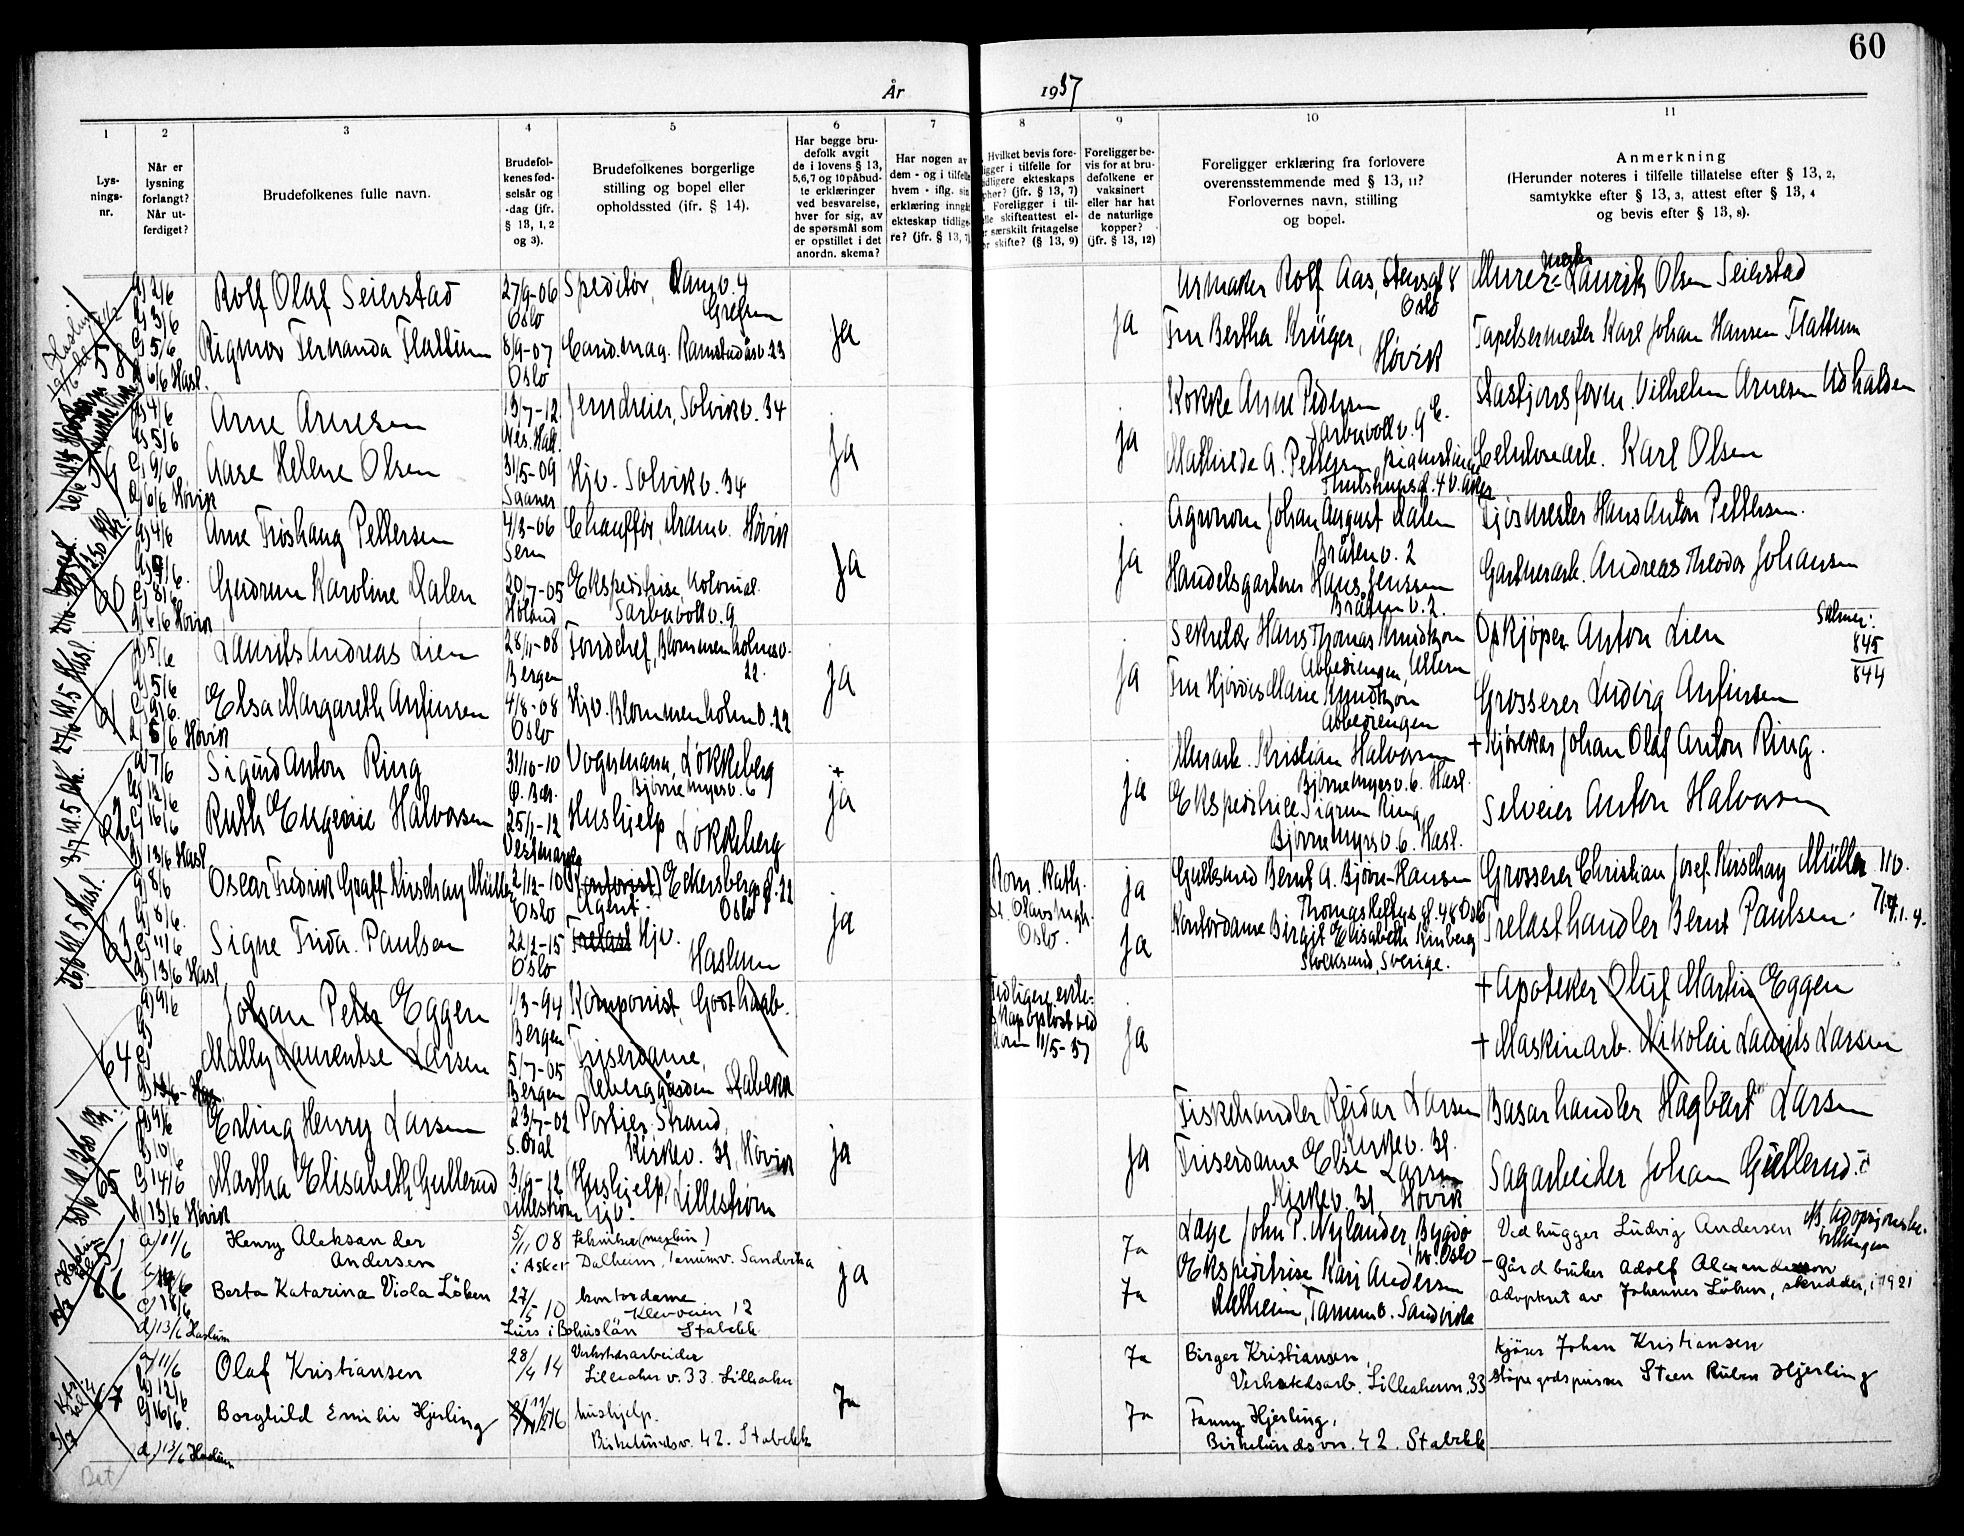 60
År 1937
1 2 3 4 5 6 7 8 9 10 11
Lys-
nings-
nr.
Når er
lysning
forlangt?
Når ut-
ferdiget?
Brudefolkenes fulle navn.
Brudefol-
kenes fød-
selsår og
-dag (jfr.
§ 13, 1, 2
og 3).
Brudefolkenes borgerlige
stilling og bopel eller
opholdssted (ifr. § 14).
Har begge bru-
defolk avgit
de i lovens § 13,
5, 6, 7 og 10 påbud-
te erklæringer
ved besvarelse,
hver for sig, av
de spørsmål som
er opstillet i det
anordn. skema?
Har nogen av
dem - og i tilfelle
hvem - iflg. sin
erklæring inngå
ekteskap tidlige-
re? (jfr. § 13, 7)
Hvilket bevis fore-
ligger i tilfelle for
tidligere ekteskaps
ophør? (jfr. § 13, 7)
Foreligger i til-
felle skifteattest el-
særskilt fritagelse
skifte? (§ 13, 9)
Foreligger be-
vis for at bru-
defolkene er
vaksinert
eller har hat
de naturlige
kopper?
(jfr. § 13, 12)
Foreligger erklæring fra forlovere
overensstemmende med § 13, 11?
Forlovernes navn, stilling
og bopel.
Anmerkning
(Herunder noteres i tilfelle tillatelse efter § 13, 2,
samtykke efter § 13, 3, attest efter § 13, 4
og bevis efter § 13, 8).
58
a) 2/6
b) 3/6
c) 5/6
d) 6/6 Hasl.
Rolf Olaf Seierstad
27/9-06
Oslo
Speditør, v. 4
Grefsen
Ja
ja
Urmaker Rolf Aas, Stensgt 8
Oslo
Murer- Laurits Olsen Seierstad
Rigmor Fernanda Flattum
8/9-07
Oslo
Cand. mag. Ramstadåsv. 23
Fru Bertha Krüger,
Høvik
Tapetsermester Karl Johan Hansen Flattum
59
a) 4/6
b) 5/6
c) 9/6
d) 6/6 Høvik
Arne Arnesen
13/7-12
Nes. Hall.
Jerndreier, Solvikv. 34
Ja
ja
Kokke Anne Pedersen
Sarbuvollv. 9 C.
Stasjonsform. Vilhelm Arnesen
Aase Helene Olsen
31/5-09
Saaner
Hjv. Solvikv. 34
Mathilde A. Pettersen
Thulstrupsgt. 4 V. Aker
Celulosearb. Karl Olsen
60
a) 4/6
c) 8/6
d) 6/6 Høvik
Arne Frøshaug Pettersen
4/3-06
Sem
Chauffør Høvik
Ja
ja
Agronom Johan August Dalen
Bråtenv. 2
Fjøsmester Hans Anton Pettersen.
Gudrun Karoline Dalen
20/7-05
Høland
Ekspeditrise, kolonial.
Sarbuvollv. 9
Handelsgartner Hans Jenssen
Bråtenv. 2.
Gartnerarb. Andreas Theodor Johansen
61
a) 5/6
b) 5/6
c) 9/6.
d) 5/6 Høvik
Laurits Andreas Lien
28/11-08
Bergen
Fondchef, Blommenholmv.
22.
ja
ja
Sekretær Hans Thomas Knudtzon
Abbediengen, Ullern
Opkjøper Anton Lien
845
844
Elsa Margareth Anfinsen
4/8-08
Oslo
Hjv. Blommenholmv. 22
Fru Hjørdis Marie Knudtzon
Abbediengen
Grosserer Ludvig Anfinsen
62
a) 7/6
b) 12/6
c) 16/6
d) 13/6 Hasl
Sigurd Anton Ring
31/10-10
Ø. Bær.
Vognmann, Løkkeberg
Bjørnemyrsv. 6
+
ja
ja
Murarb. Kristian Halvorsen
Bjørnemyrsv. 6. Hasl.
+ Kjørekar Johan Olaf Anton Ring.
Ruth Eugenie Halvorsen
25/1-12
Vestmarka
Hushjelp Løkkeberg
Ekspeditrice Sigrun Ring
Bjørnemyrsv. 6. Hasl.
Selveier Anton Halvorsen
63
a) 8/6
b) 8/6.
c) 11/6
d) 13/6 Hasl
Oscar Fredrik Graff Kirschay Müller
2/12-10
Oslo
(Kontorist) Eckersbergsgt. 22
Agent. Oslo
ja
Rom. Kath.
St. Olavs
Oslo.
ja
Gullsmed Bernt A. Bjørn-Hansen
Thomas Heftyes gt. 48 Oslo
Grosserer Christian Josef Kirschay Müller
Signe Frida Paulsen
22/2-15
Oslo
Trelast Hjv.
Haslum
ja
Kontordame Birgit Elisabeth Kinberg
Stocksund, Sverige.
Trelasthandler Bernt Paulsen.
64
a) 9/6
b)
c)
d) 13/6 -
Johan Peter Eggen
1/3-94
Bergen
Komponist, Godthaab.
Tidligere ekte-
skap opløst ved
dom 11/5-37
ja
+ Apoteker Oluf Martin Eggen
Mally Laurentse Larsen
5/7-05
Bergen
Friserdame,
Reberggården Stabekk
+ Maskinarb. Nikolai Laurits Larsen
65
a) 9/6
b) 10/6
c) 14/6
d) 13/6 Høvik
Erling Henry Larsen
23/7-02
S. Odal
Portier Strand,
Kirkev. 31, Høvik
ja
ja
Fiskehandler Reidar Larsen
Kirkev. 31.
Basarhandler Hagbart Larsen
Martha Elisabeth Gullerud
3/9-12
Lillestrøm
Hushjelp, Lillestrøm
hjv.
Friserdame Else Larsen
Kirkev. 31, Høvik
Sagarbeider Johan Gullerud
66
a) 11/6
c) 18/6
d) 13/6 Haslum
Henry Aleksander
Andersen
5/11 08
i Asker
tekniker (maskin)
Dalheim, Tanumv. Sandvika
ja
Ja
Læge John P. Nylander, Bygdø
pr. Oslo
Vedhugger Ludvig Andersen
Berta Katarina Viola Löken
27/5 10
Lurs i Bohuslän
kontordame
Kleivveien 12
Stabekk
Ja
Ekspeditrise Kari Andersen
Dalheim, Tanumv. Sandvika
- Gårdbruker Adolf Alexanderson
adoptert av Johannes Löken, skredder, i 1921
67
a) 11/6
b) 12/6
c) 16/6.
d) 13/6 Haslum
Olaf Kristiansen
28/4 14
Verkstedarbeider
Lilleaker v. 33. Lilleaker
Ja
Ja
Birger Kristiansen,
Verkstedsarb. Lilleakerv. 33
kjører Johan Kristiansen
Borghild Emilie Hjerling
hushjelp.
Birkelundsv. 42. Stabekk
Ja
Fanny Hjerling,
Birkelundsvn. 42. Stabekk
støpegodspusser Steen Ruben Hjerling
Bet